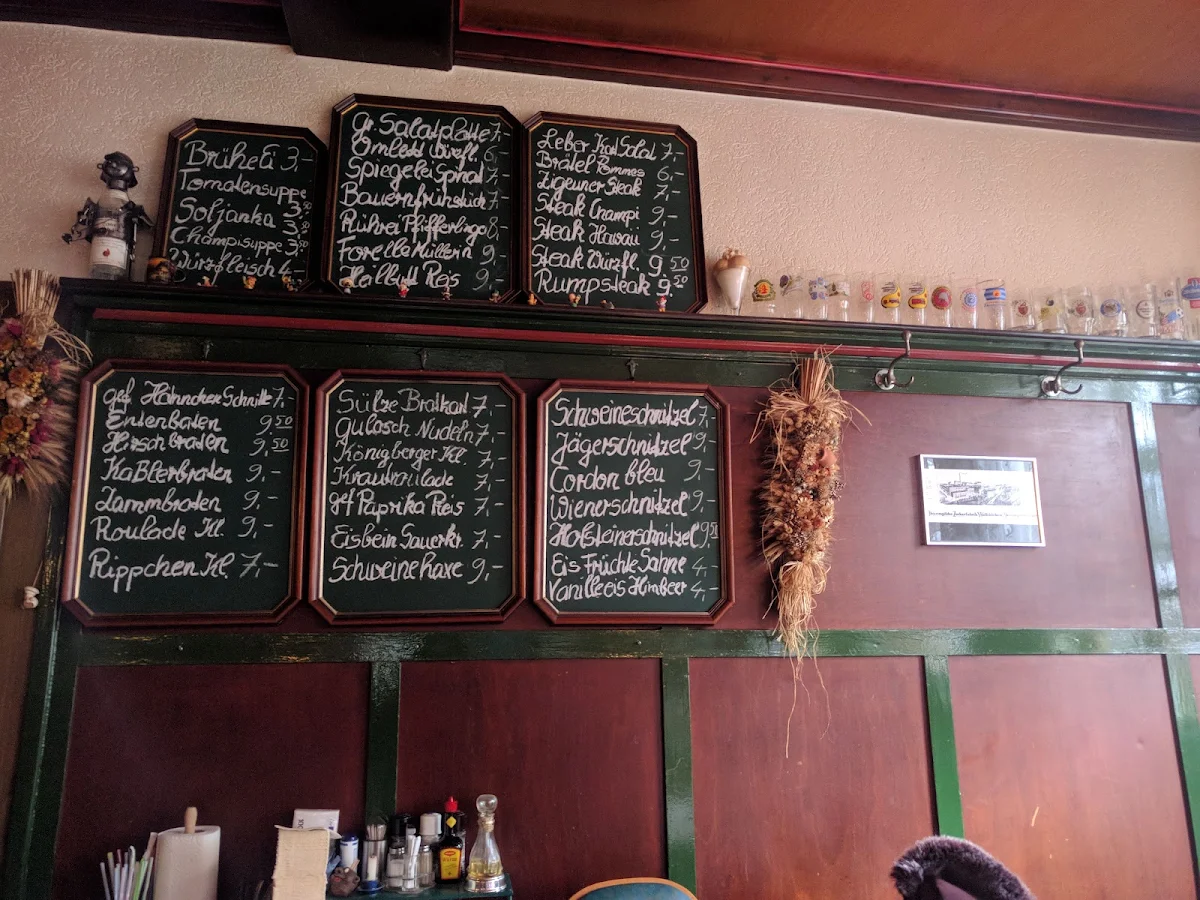 Brühe Ei 3,-
Tomatensuppe 3,50
Soljanka 3,50
Champisuppe 3,50
Würzfleisch 4,-
gr. Salatplatte 7,-
Omlett Würzfl. 6,-
Spiegelei Spinat 7,-
Bauernfrühstück 7,-
Rührei Pfifferlinge 8,-
Forelle Müllerin 9,-
Reis 9,-
Leber Kart Salat 7,-
Brätel Pommes 6,-
Zigeuner Steak 7,-
Steak Champi 9,-
Steak Hawai 9,-
Steak Würzfl. 9,50
Rumpsteak 9,50
gef Hähnchen Schnitte 7,-
Entenbraten 9,50
Hirschbraten 9,50
Kaßlerbraten 9,-
Lammbraten 9,-
Roulade Kl. 9,-
Rippchen Kl. 7,-
Sülze Bratkart 7,-
Gulasch Nudeln 7,-
Königberger Kl. 7,-
Krautroulade 7,-
gef Paprika Reis 7,-
Eisbein Sauerkr. 7,-
Schweinehaxe 9,-
Schweineschnitzel 7,-
Jägerschnitzel 9,-
Cordon bleu 9,-
Wienerschnitzel 9,-
Holsteinerschnitzel 9,50
Eis Früchte Sahne 4,-
Vanilleeis Himbeer 4,-